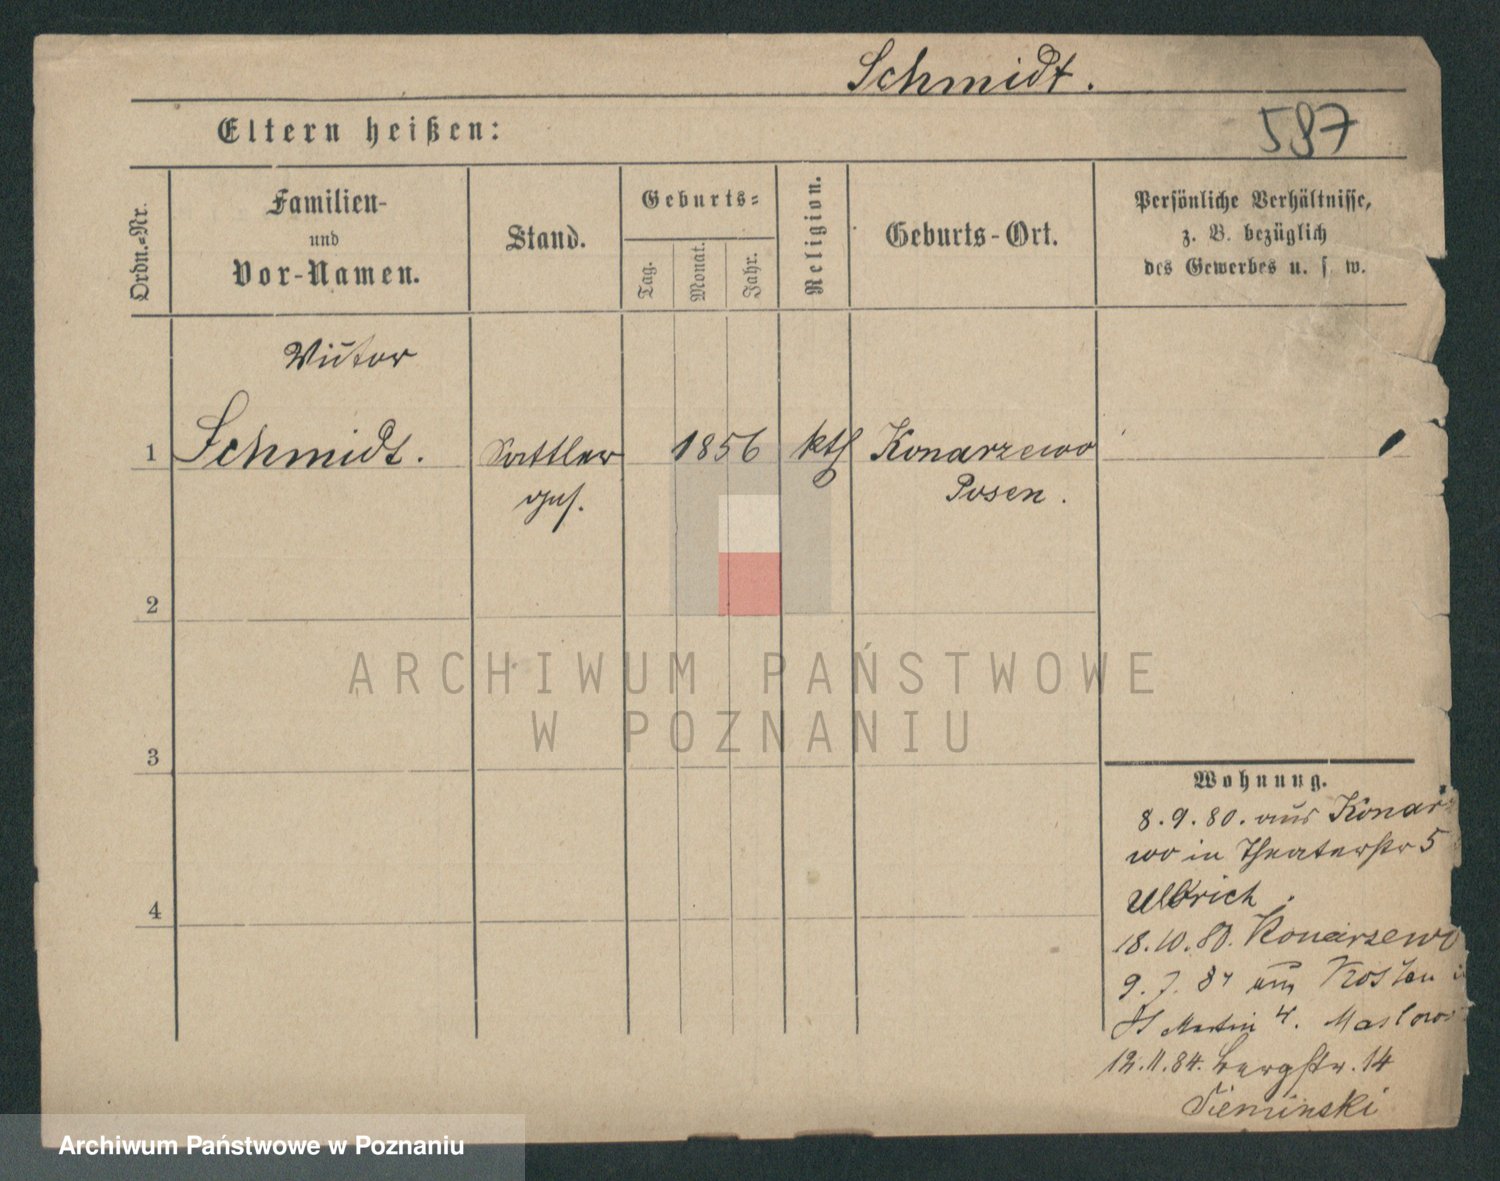 Schmidt.
Eltern heißen:
587
Ordn.-Nr.
Familien-
und
Vor-Namen.
Stand.
Geburts-
Tag.
Monat.
Jahr.
Religion.
Geburts-Ort.
Persönliche Verhältnisse,
z. B. bezüglich
des Gewerbes u. s. w.
Victor
1 Schmidt. Sattler 1856 kth Konarzewo
Posen.
2
3
4
Wohnung.
8.9.80. aus Konarz
wo in Theaterstr 5
Ulbrich.
18.10.80. Konarzewo
9.7.84 aus Kosten
St Martin 4.
12.11.84. Bergstr. 14
Sieminski
ARCHIWUM PAŃSTWOWE
W POZNANIU
Archiwum Państwowe w Poznaniu